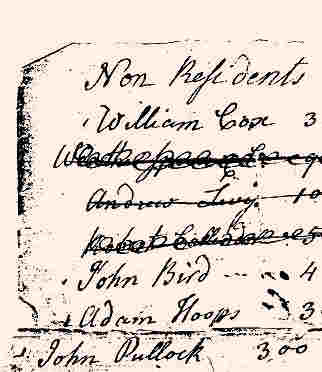 Non Residents
William Cox 3
Andrew Levy 10
Robert 5
John Bird 4
Adam Hoops 3
John Pullock 300